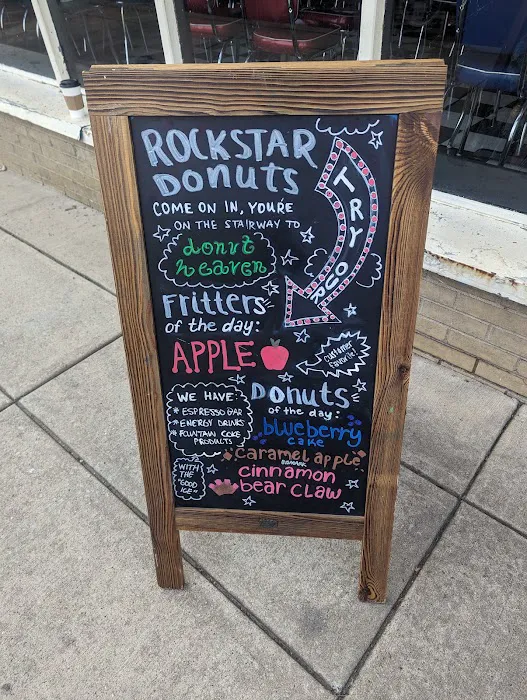 ROCKSTAR
DONUTS
COME ON IN, YOU'RE
ON THE STAIRWAY TO
donut
heaven
TRY OUR
Fritters
of the day:
APPLE
customer
favorite!
WE HAVE:
* ESPRESSO BAR
* ENERGY DRINKS
* FOUNTAIN COKE
PRODUCTS
WITH
THE
"GOOD
ICE"
DONUTS
of the day:
blueberry
cake
caramel apple
cinnamon
bear claw